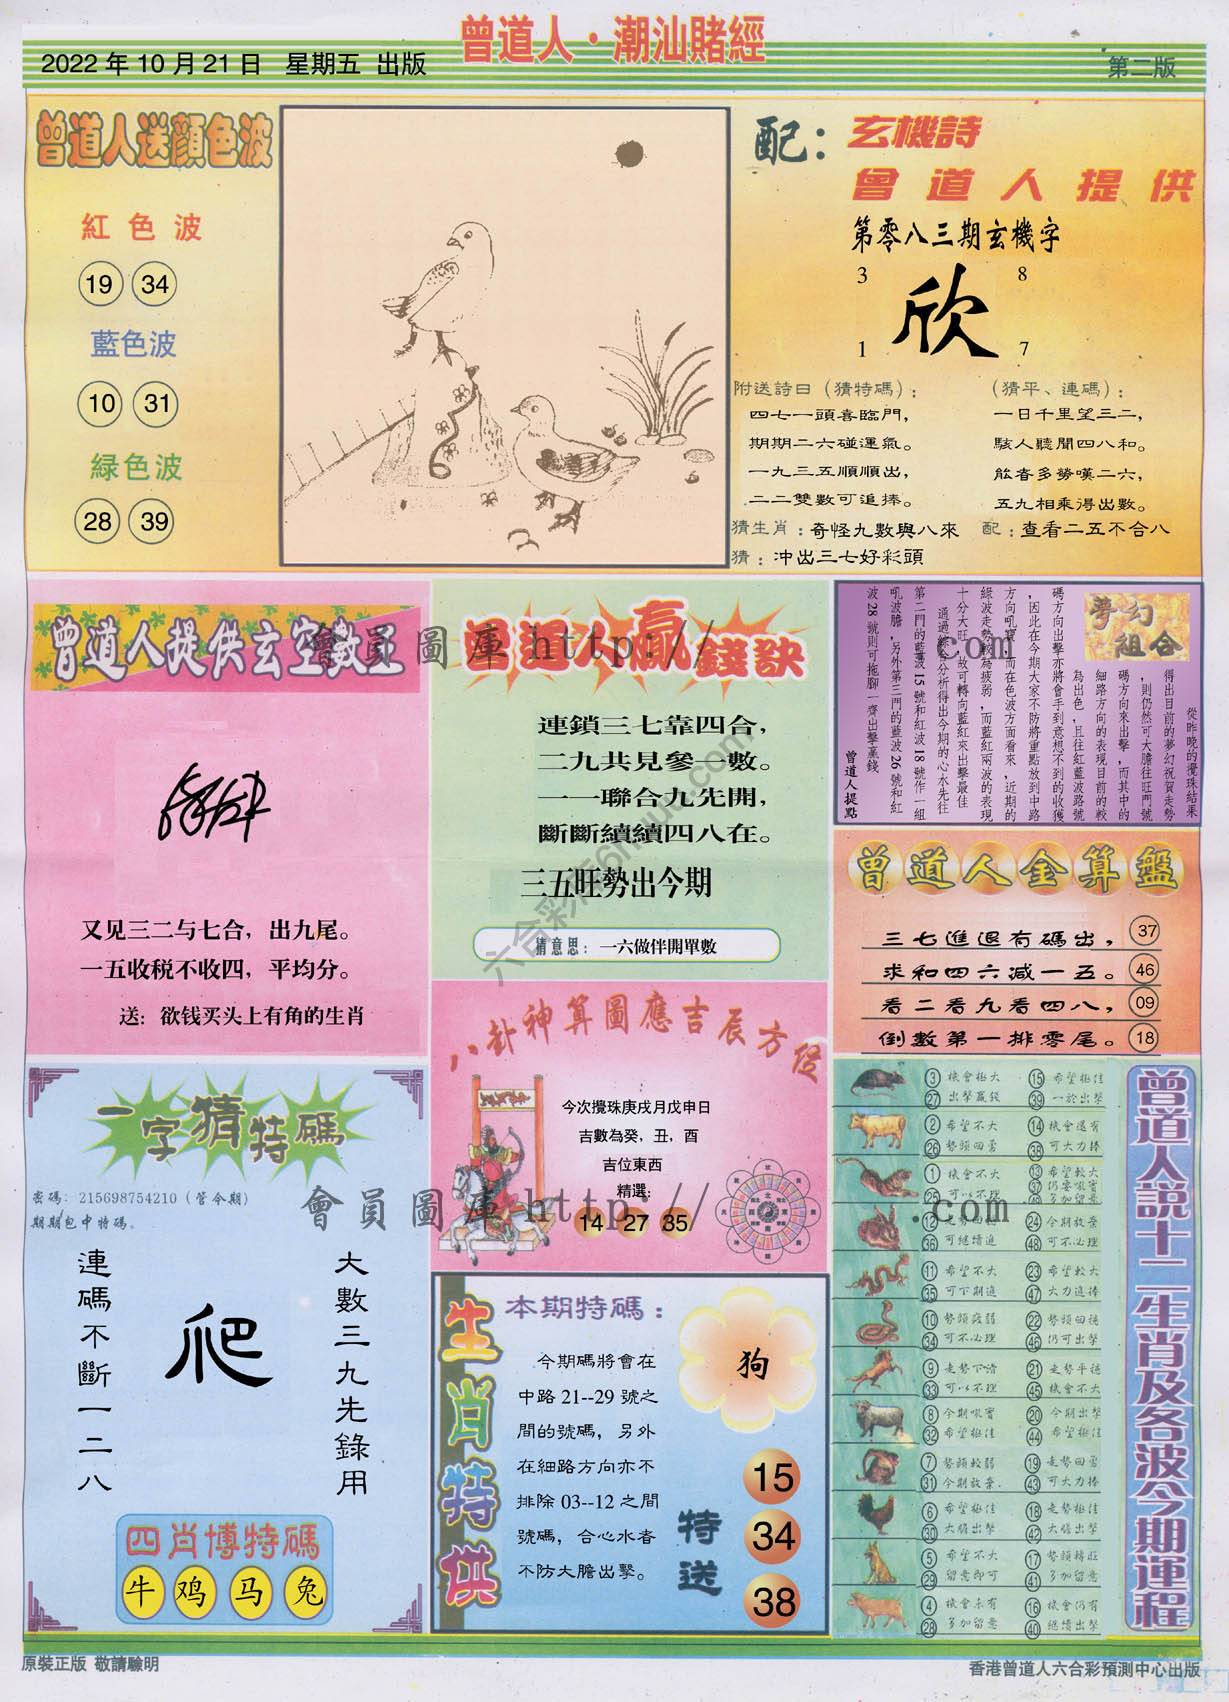 曾道人·潮汕賭經
2022 年 10 月 21 日 星期五 出版
第二版
曾道人送顏色波
紅色波
19 34
藍色波
10 31
綠色波
28 39
配：玄機詩
曾道人提供
第零八三期玄機字
3 8
欣
1 7
附送詩曰（猜特碼）：
四七一頭喜臨門，
期期二六碰運氣。
一九三五順順出，
二二雙數可追捧。
（猜平、連碼）：
一日千里望三二，
駭人聽聞四八和。
能者多勞嘆二六，
五九相乘得出數。
猜生肖：奇怪九數與八來
配：查看二五不合八
猜：冲出三七好彩頭
曾道人提供玄空數王
又见三二与七合，出九尾。
一五收税不收四，平均分。
送：欲钱买头上有角的生肖
曾道人贏錢訣
連鎖三七靠四合，
二九共見參一數。
一一聯合九先開，
斷斷續續四八在。
三五旺勢出今期
猜意思：一六做伴開單數
夢幻
組合
從昨晚的攪珠結果
得出目前的夢幻祝賀走勢
，則仍然可大膽往旺門號
碼方向來出擊，而其中的
細路方向的表現目前的較
為出色，且往紅藍波路號
碼方向出擊亦將會手到意想不到的收獲
，因此在今期大家不防將重點放到中路
方向吼寶，而在色波方面看來，近期的
綠波走勢較為疲弱，而藍紅兩波的表現
十分大旺，故可轉向藍紅來出擊最佳
通過綜合分析得出今期的心水先往
第二門的藍波 15 號和紅波 18 號作一組
吼波膽，另外第三門的藍波 26 號和紅
波 28 號則可拖腳一齊出擊贏錢
曾道人提點
曾道人金算盤
三七進退有碼出，37
求和四六减一五。46
看二看九看四八，09
倒數第一排零尾。18
八卦神算圖應吉辰方位
今次攪珠庚戌月戊申日
吉數為癸，丑，酉
吉位東西
精選：
14 27 35
一字猜特碼
密碼：215698754210（管今期）
期期包中特碼。
連碼不斷一二八
爬
大數三九先錄用
四肖博特碼
牛 鸡 马 兔
生肖特供
本期特碼：
今期碼將會在
中路 21--29 號之
間的號碼，另外
在細路方向亦不
排除 03--12 之間
號碼，合心水者
不防大膽出擊。
狗
特送
15
34
38
曾道人說十二生肖及各波今期運程
3 機會極大 15 希望極佳
27 出擊贏錢 39 一於出擊
2 希望不大 14 機會還有
26 勢頭回勇 38 可大力捧
1 機會不大 13 希望較大
25 可以不理 37 仍要吸實
多加留意
12 走勢回 24 今期放棄
36 可繼續追 48 可不必理
11 希望不大 23 希望較大
35 可下期追 47 大力追捧
10 勢頭疲弱 22 勢頭回穩
34 可不必理 46 仍可出擊
9 走勢下滑 21 走勢平穩
33 可以不理 45 機會不大
8 今期吸實 20 今期出擊
32 希望極佳 44 希望極佳
7 勢頭較弱 19 走勢回勇
31 今期放棄. 43 可大力捧
6 希望極佳 18 走勢極佳
30 大膽出擊 42 大膽出擊
5 希望不大 17 勢頭轉旺
29 留意即可 41 多加留意
4 機會未有 16 機會仍有
28 多加留意 40 繼續出擊
會員圖庫 http://
.com
會員圖庫 http://
.com
原裝正版 敬請驗明
香港曾道人六合彩預測中心出版